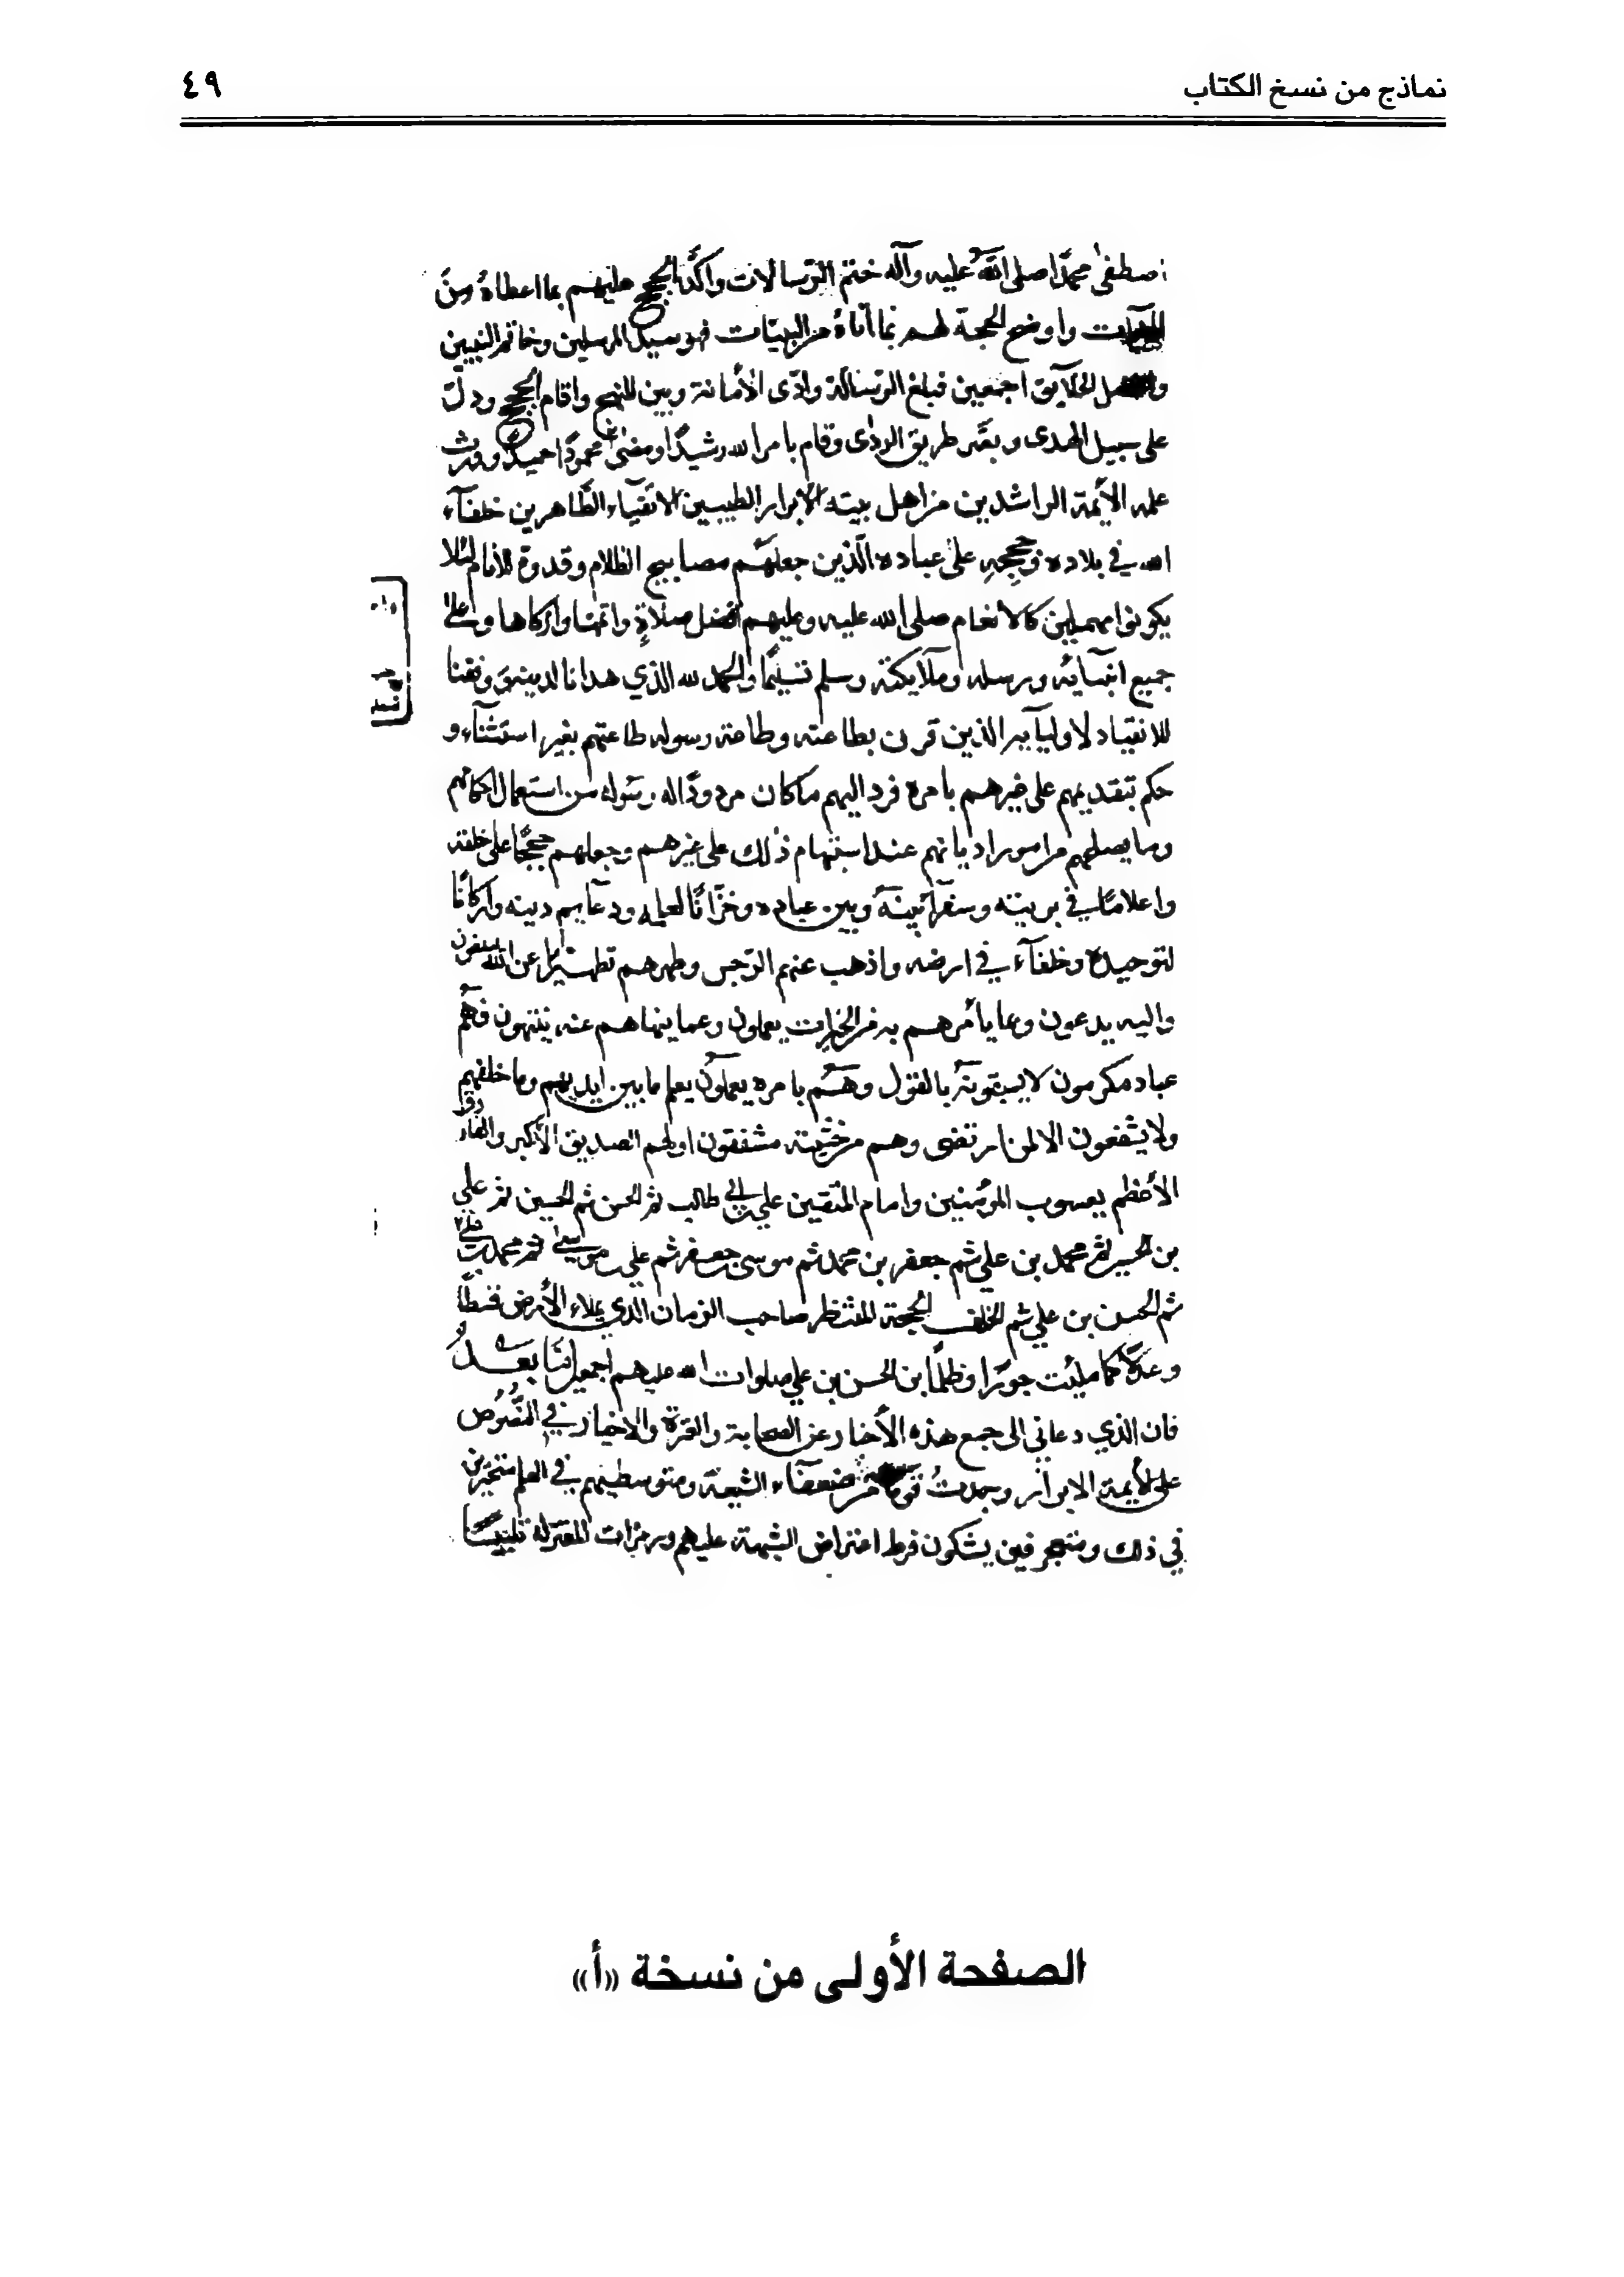 نماذج من نسخ الكتاب ٤٩
اصطفى محمدا صلى الله عليه وآله ختم الرسالات واكد الحجج عليهم بما اعطاه من
واوضح الحجة لهم بما آتاه من البينات فهو سيد المرسلين وخاتم النبيين
الخلايق اجمعين فبلغ الرسالة وادى الأمانة وبين المنهج واقام الحجج ودل
على سبيل الهدى وبصر طريق الردى وقام بامر الله رشيدا ومضى محمودا حميدا وورث
علمه الأيمة الراشدين من اهل بيته الأبرار الطيبين الاتقياء الطاهرين خلفآء
الله في بلاده وحججه على عباده الذين جعلهم مصابيح الظلام وقدوة للأنام لئلا
يكونوا مهملين كالانعام صلى الله عليه وعليهم افضل صلاة واتمها وازكاها وعلى
جميع انبيائه ورسله وملآيكته وسلم تسليما والحمد لله الذي هدانا لدينه ووفقنا
للانقياد لاوليآيه الذين قرن بطاعته وطاعة رسوله طاعتهم بغير استثنآء و
حكم بتقديمهم على غيرهم بامره فرد اليهم ماكان مردودا له ولرسوله من استعمال احكامهم
وما يصلهم من امور اديانهم عند استبهام ذلك على غيرهم وجعلهم حججا على خلقه
واعلاما في بريته وسفرآء بينه وبين عباده وخزانا لعلمه ودعآيم دينه واركانا
لتوحيده وخلفآء في ارضه واذهب عنهم الرجس وطهرهم تطهيرا عن الله
واليه يدعون وبما يأمرهم به من الخيرات يعملون وعما ينهاهم عنه ينتهون فهم
عباد مكرمون لايسبقونه بالقول وهم بامره يعملون يعلم مابين ايديهم وما خلفهم
ولايشفعون الا لمن ارتضى وهم من خشيته مشفقون اولهم الصديق الأكبر والفاروق
الأعظم يعسوب المؤمنين وامام المتقين علي بن ابي طالب ثم الحسن ثم الحسين ثم علي
بن الحسين ثم محمد بن علي ثم جعفر بن محمد ثم موسى بن جعفر ثم علي بن موسى ثم محمد بن
ثم الحسن بن علي ثم الخلف الحجة المنتظر صاحب الزمان الذي يملاء الأرض قسطا
وعدلا كما ملئت جورا وظلما بن الحسن بن علي صلوات الله عليهم اجمعين اما بعد
فان الذي دعاني الى جمع هذه الأخبار عن الصحابة والعترة والاخيار في النصوص
على الأيمة الابرار وجدت قوما من ضعفآء الشيعة ومتوسطيهم في العلم متحيرين
في ذلك ومتجرفين يشكون فرط اعتراض الشبهة عليهم وزمرات المعتزلة تلبيسا
الصفحة الأولى من نسخة «أ»